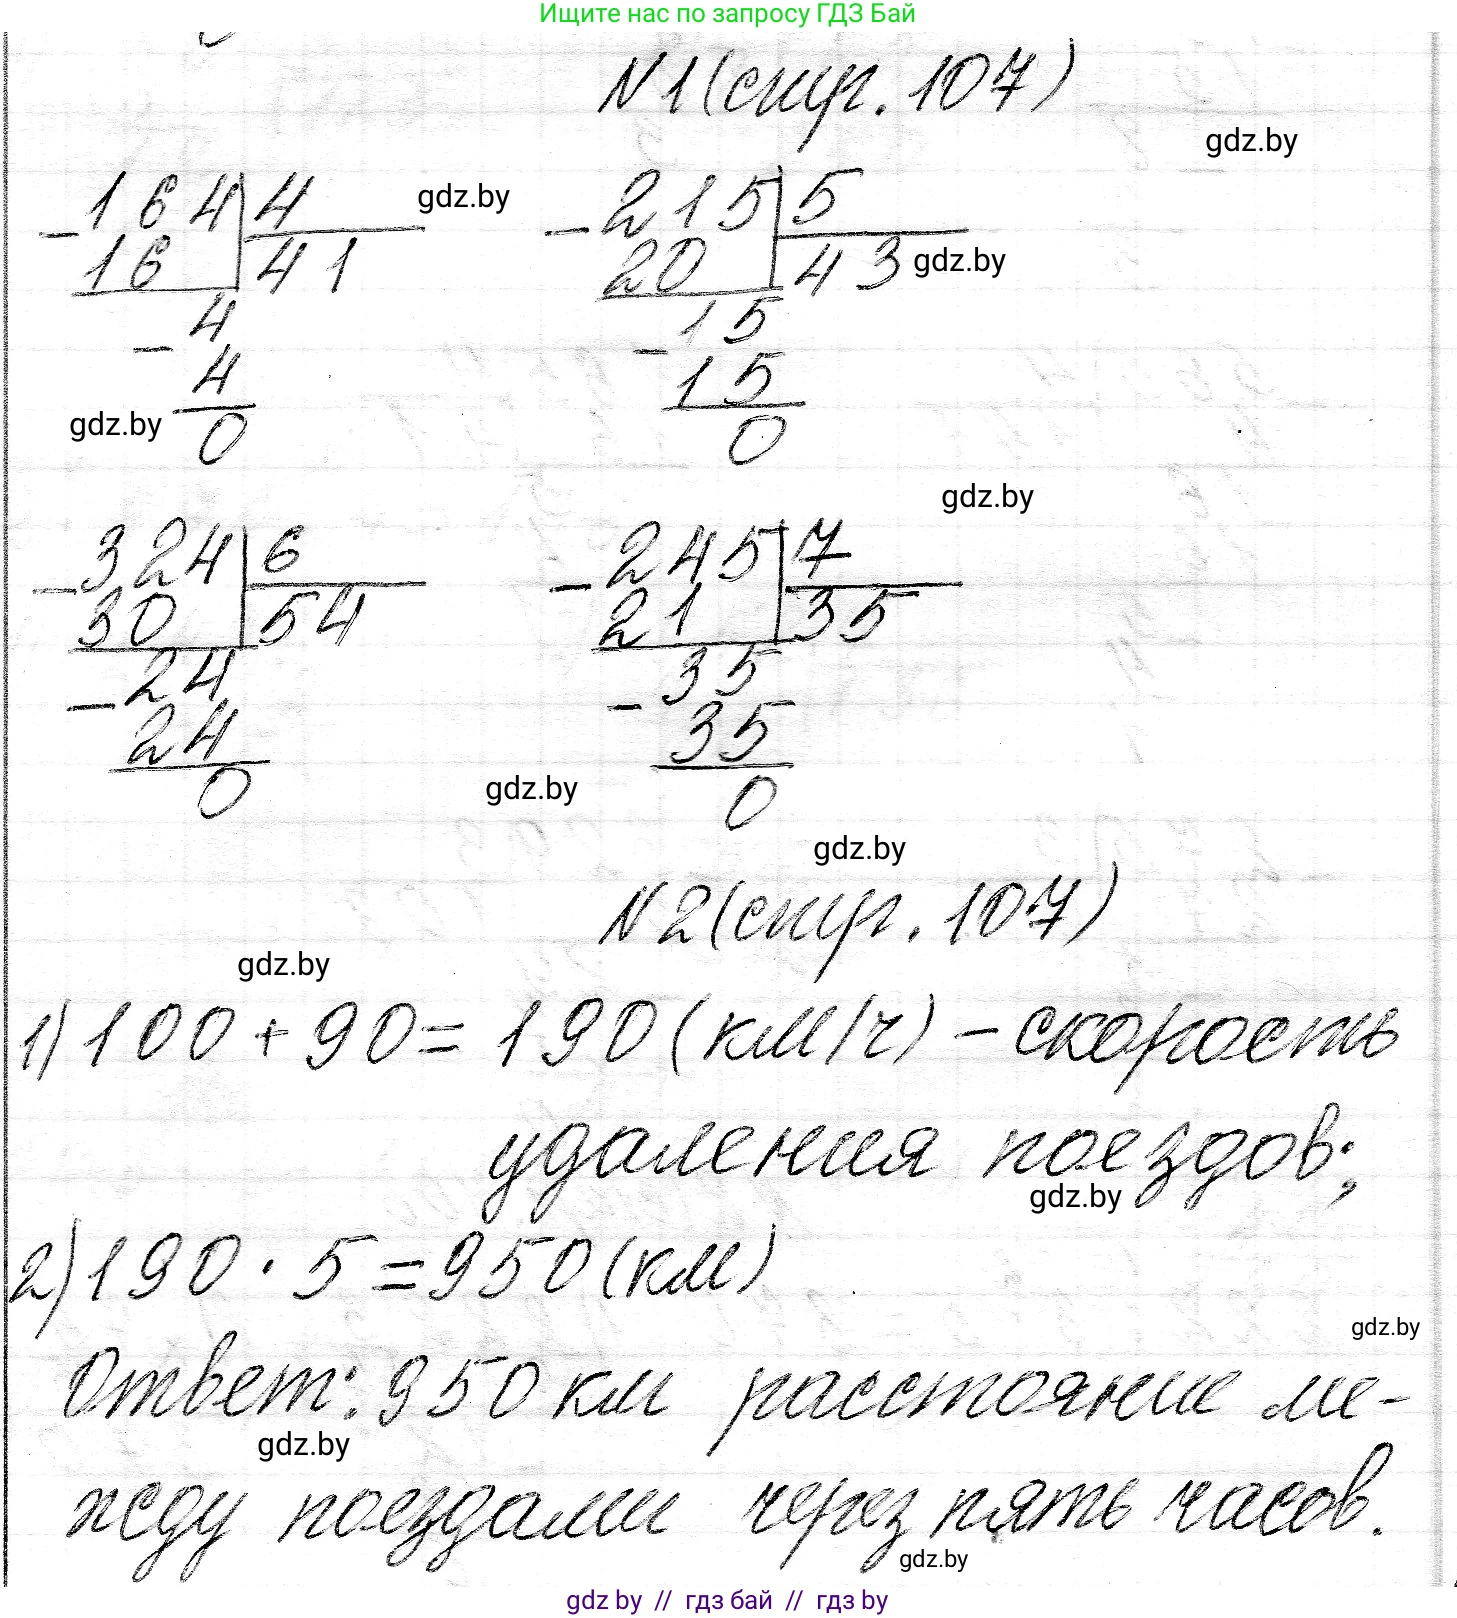 Ищите нас по запросу ГДЗ Бай
№1(стр. 107)
gdz.by
164 4 gdz.by 215 5
16 41 20 43 gdz.by
4 15
4 15
gdz.by 0 0
gdz.by
324 6 245 7
30 54 21 35
24 35
24 35
0 gdz.by 0
gdz.by
№2(стр. 107)
gdz.by
1) 100 + 90 = 190 (км/ч) - скорость
удаления поездов;
gdz.by
2) 190 · 5 = 950 (км)
gdz.by
Ответ: 950 км расстояние ме-
gdz.by
жду поездами через пять часов.
gdz.by
gdz by // гдз бай // гдз by